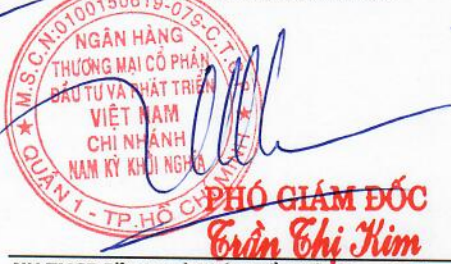 M.S.C.N:0100150619-079-C.T.C.P
NGÂN HÀNG
THƯƠNG MẠI CỔ PHẦN
ĐẦU TƯ VÀ PHÁT TRIỂN
VIỆT NAM
CHI NHÁNH
NAM KỲ KHỞI NGHĨA
QUẬN 1 - TP.HỒ CHÍ MINH
PHÓ GIÁM ĐỐC
Trần Thị Kim